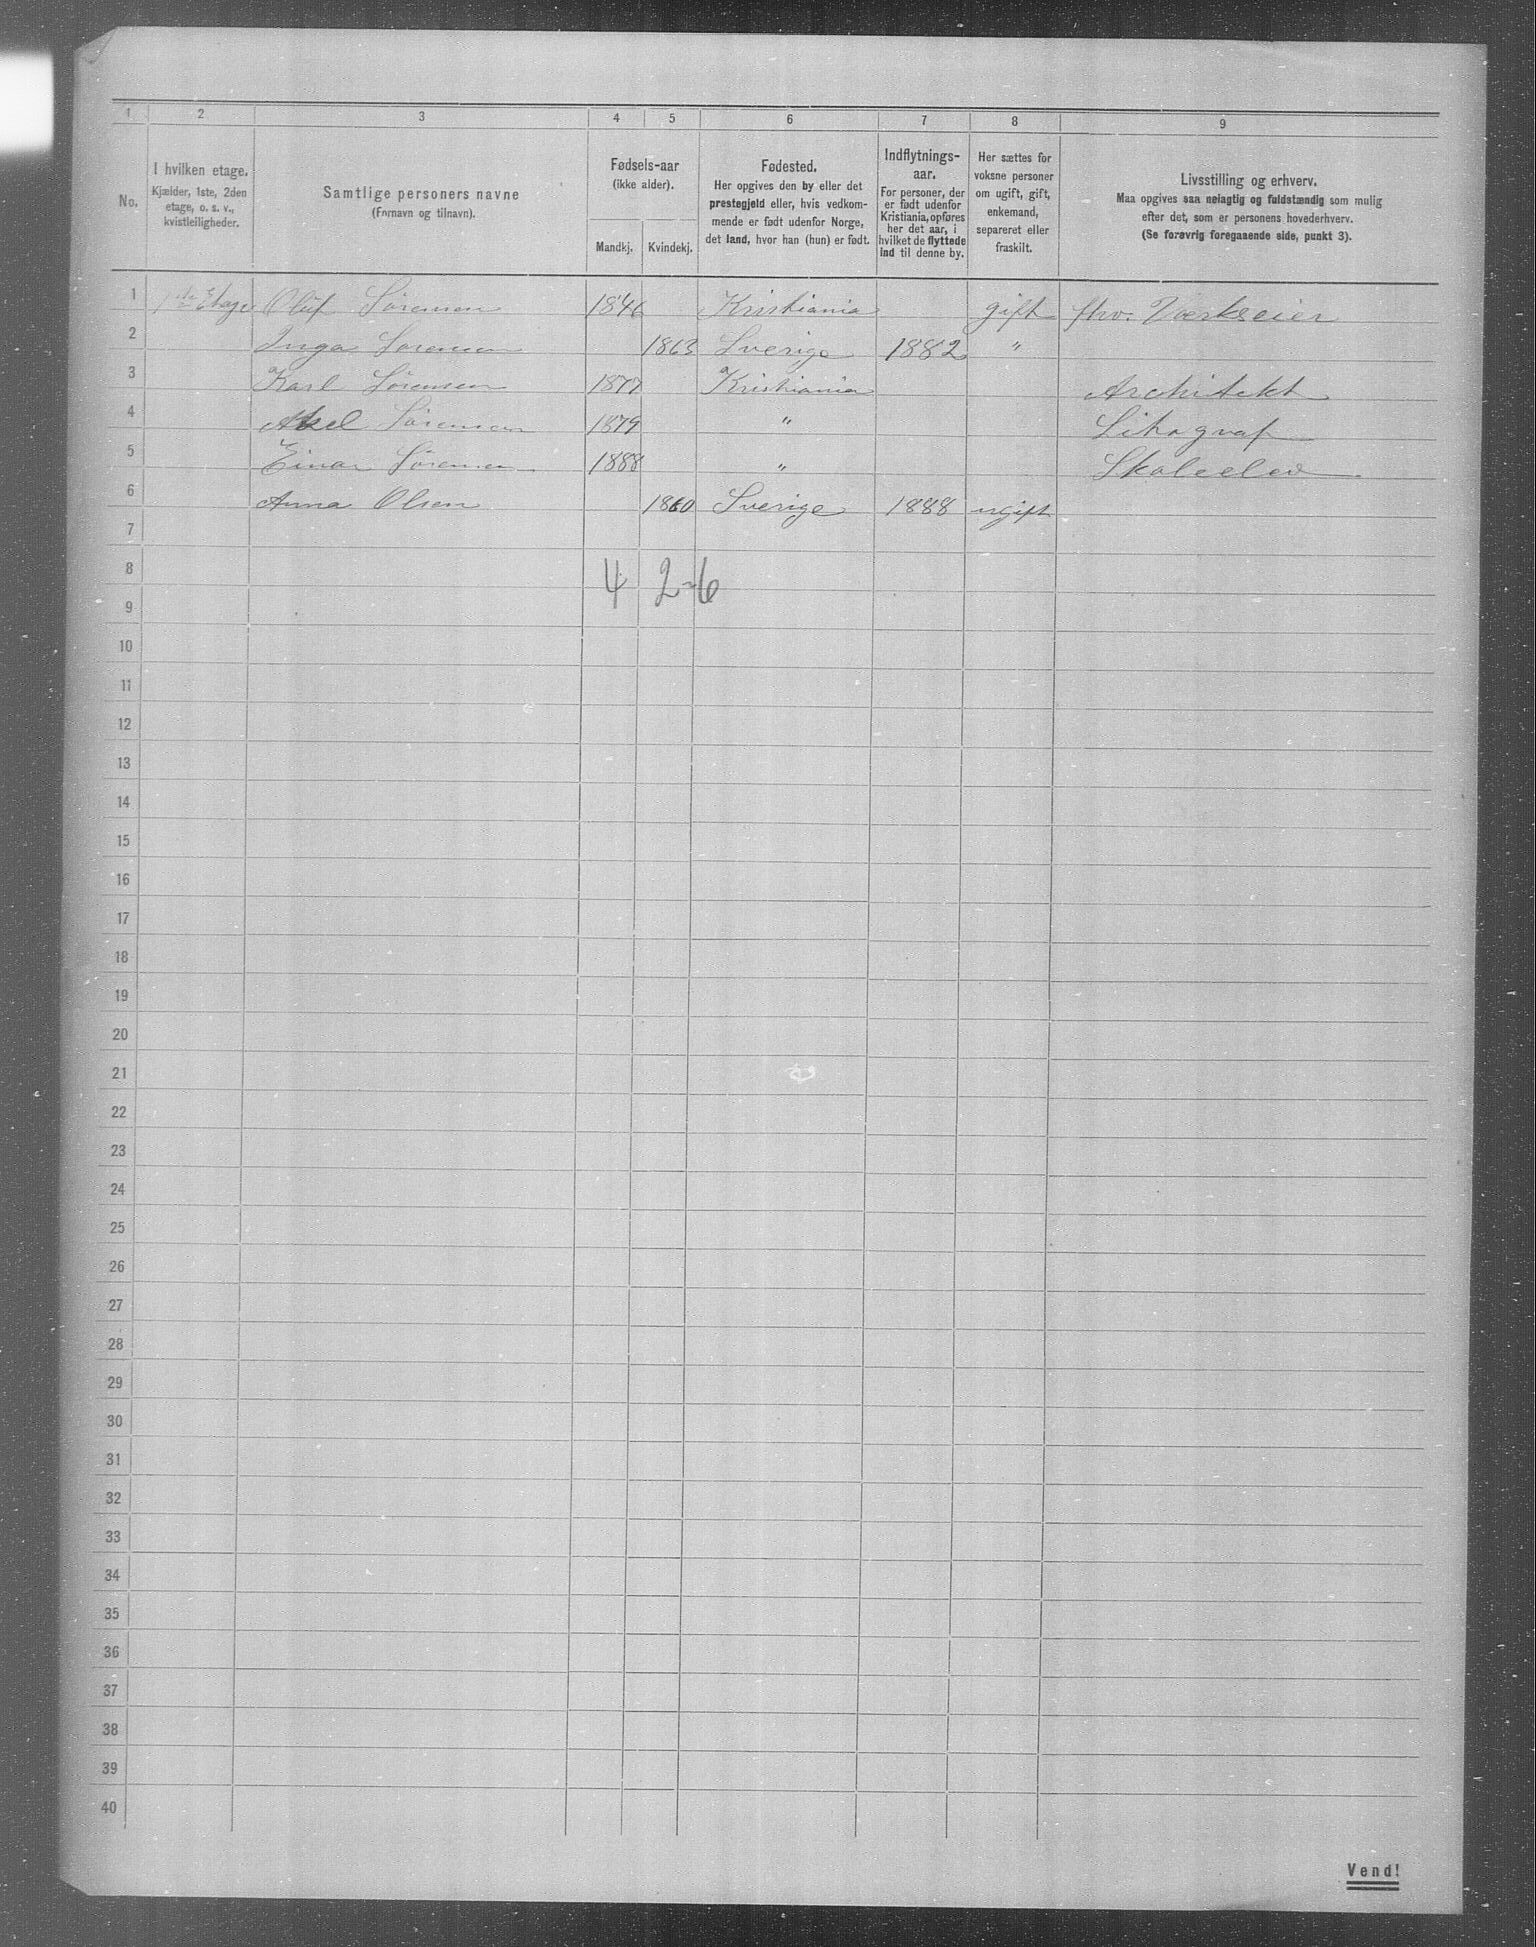 1 2 3 4 5 6 7 8 9
No.
I hvilken etage.
Kjælder, 1ste, 2den
etage, o. s. v.,
kvistleiligheder.
Samtlige personers navne
(Fornavn og tilnavn).
Fødsels-aar
(ikke alder).
Mandkj. Kvindekj.
Fødested.
Her opgives den by eller det
prestegjeld eller, hvis vedkom-
mende er født udenfor Norge,
det land, hvor han (hun) er født.
Indflytnings-
aar.
For personer, der
er født udenfor
Kristiania, opføres
her det aar, i
hvilket de flyttede
ind til denne by.
Her sættes for
voksne personer
om ugift, gift,
enkemand,
separeret eller
fraskilt.
Livsstilling og erhverv.
Maa opgives saa nøiagtig og fuldstændig som mulig
efter det, som er personens hovederhverv.
(Se forøvrig foregaaende side, punkt 3).
1 1ste Etage Oluf Sørensen 1846 Kristiania gift fhv. Værkseier
2 Inga Sørensen 1863 Sverige 1882 "
3 Karl Sørensen 1877 Kristiania Architekt
4 Axel Sørensen 1879 " Litograf
5 Einar Sørensen 1888 " Skoleelev
6 Anna Olsen 1860 Sverige 1888 ugift
7
8 4 2-6
9
10
11
12
13
14
15
16
17
18
19
20
21
22
23
24
25
26
27
28
29
30
31
32
33
34
35
36
37
38
39
40
Vend!